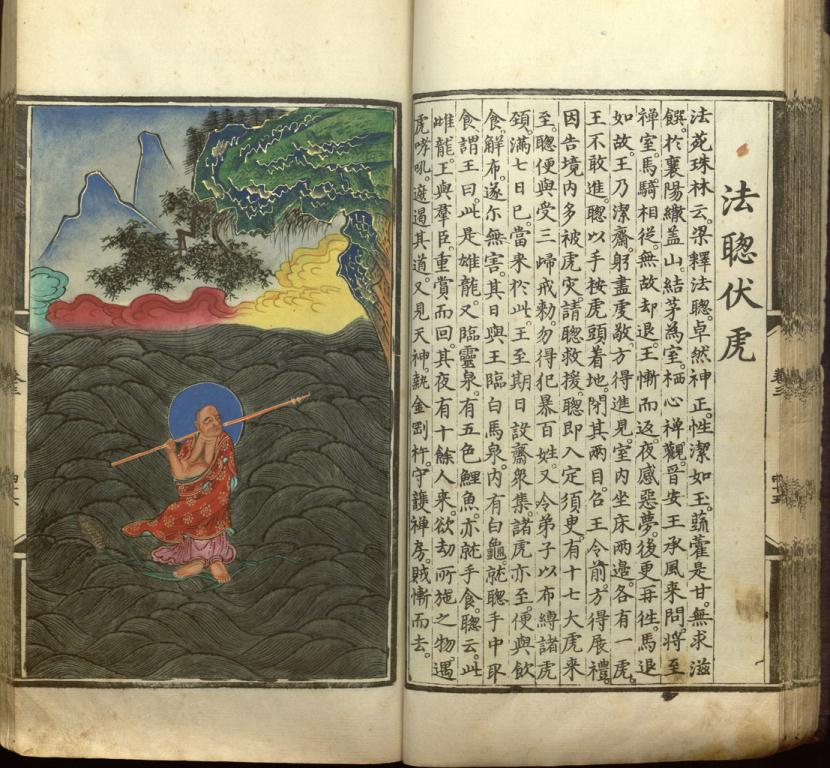 法聦伏虎
法苑珠林云。梁釋法聦。卓然神正。性潔如玉。蔬藿是甘。無求滋
饌。於襄陽繖盖山。結茅為室。栖心禅觀。晋安王承風来問。將至
禅室。馬騎相從。無故却退。王慚而返。夜感惡夢。後更再徃。馬退
如故。王乃潔齋。躬盡虔敬。方得進見。室内坐床兩邉。各有一虎。
王不敢進。聦以手按虎頭着地。閉其兩目。召王令前。方得展禮。
因告境内多被虎灾。請聦救援。聦即入定須更。有十七大虎来
至。聦便與受三歸戒勅。勿得犯暴百姓。又令弟子以布縛諸虎
頚。滿七日已。當来於此。王至期日設齋衆集。諸虎亦至。便與飲
食。解布。遂尓無害。其日與王臨白馬泉。内有白龜。就聦手中取
食。謂王曰。此是雄龍。又臨靈泉。有五色鯉魚。亦就手食。聦云。此
雌龍。王與羣臣。重賞而回。其夜有十餘人来。欲劫所施之物。遇
虎哮吼。遮遏其道。又見天神。執金剛杵。守護禅房。賊慚而去。
卷三